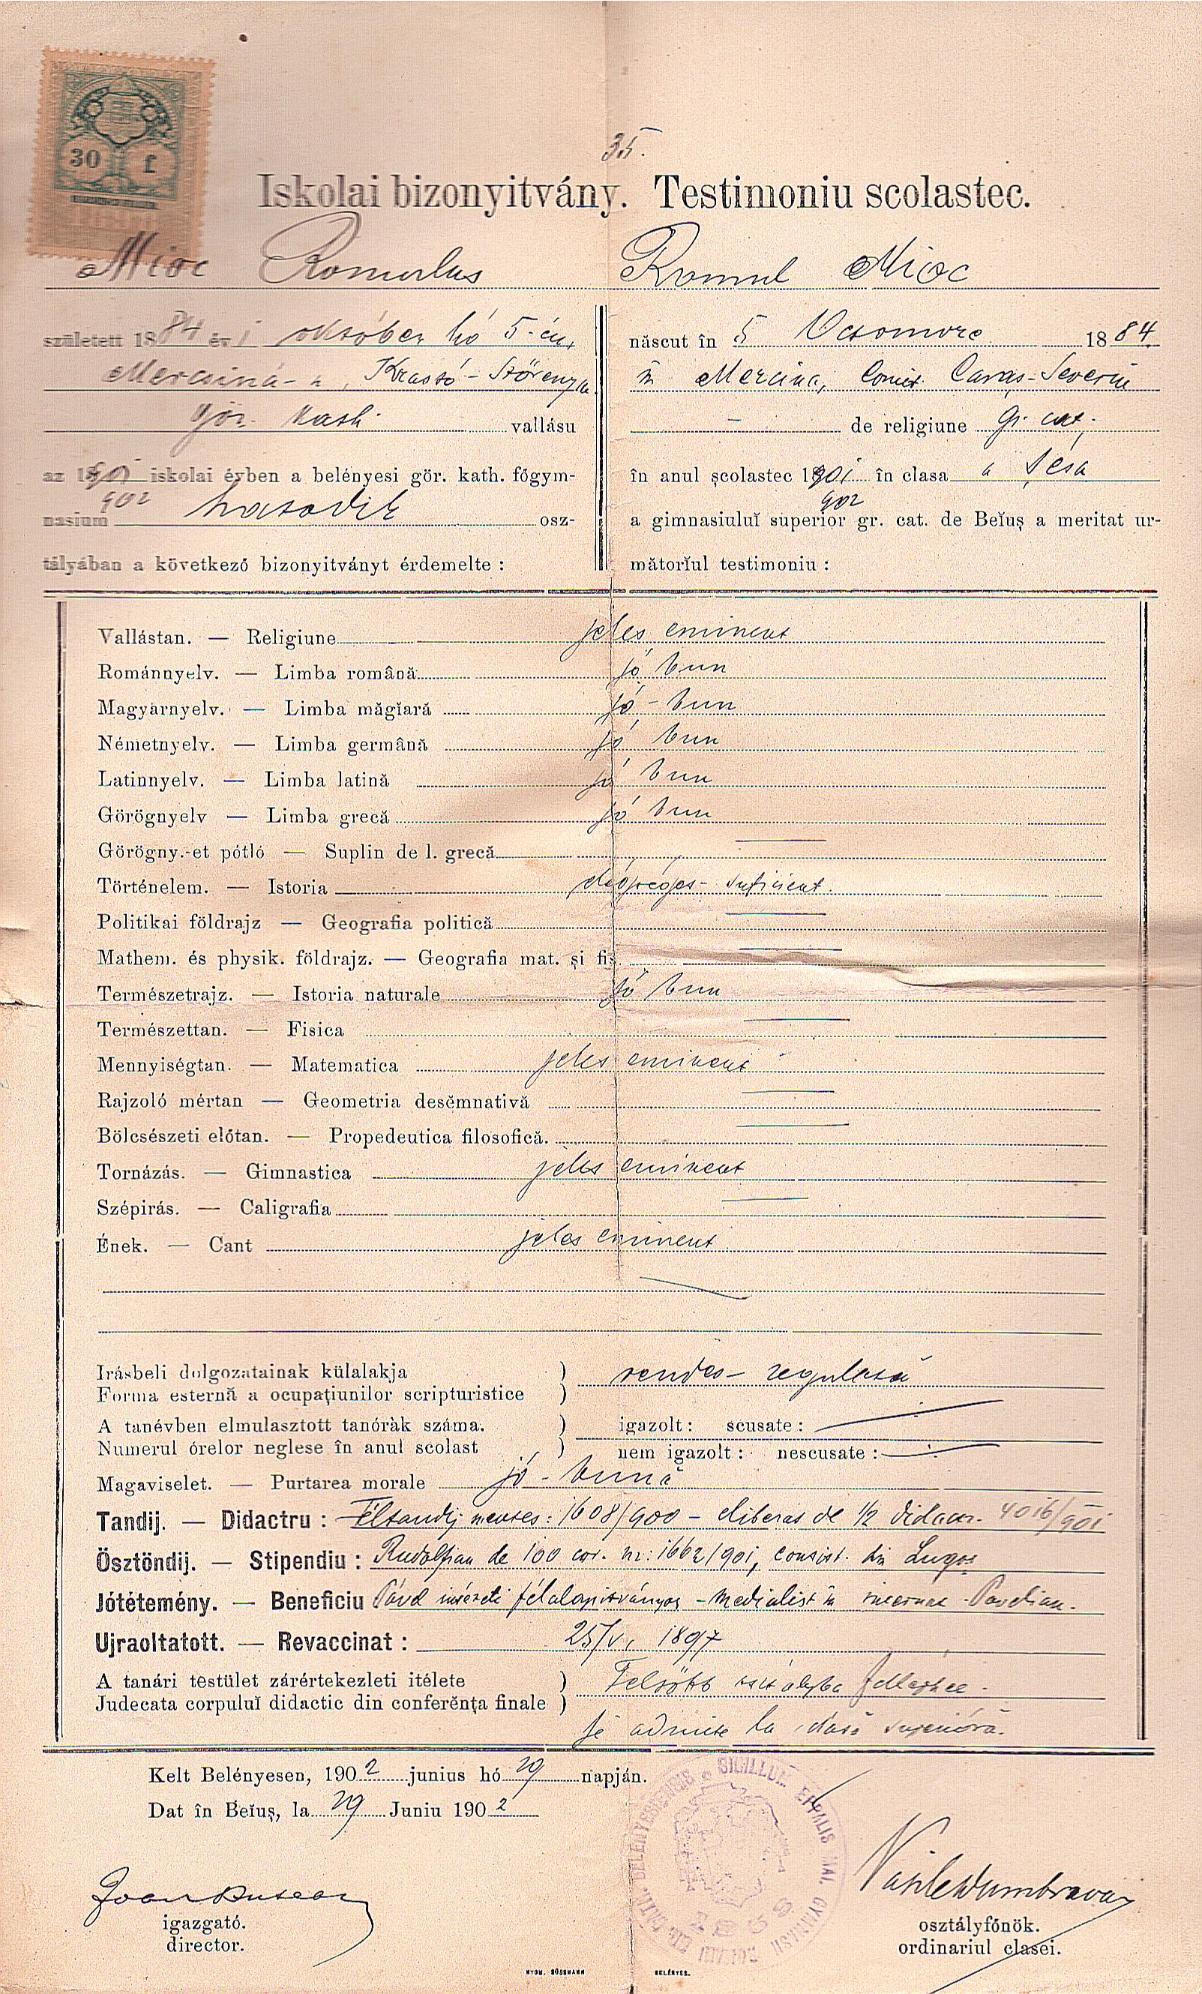 30 f
35.
Iskolai bizonyitvány. Testimoniu scolastec.
Mioc Romulus Romul Mioc
született 1884 év i október hó 5-én,
Mercsiná-n, Krassó-Szörény
gör. kath. vallásu
az 1901 iskolai évben a belényesi gör. kath. főgym-
902
nasium hatodik osz-
tályában a következő bizonyitványt érdemelte :
născut în 5 Octomvre 1884.
în Mercina, Comit. Caraș-Severin
— de religiune gr. cat.
în anul școlastec 1901 în clasa a șésa
902
a gimnasiuluĭ superior gr. cat. de Beĭuș a meritat ur-
mătorĭul testimoniu :
Vallástan. — Religiune jeles eminent
Románnyelv. — Limba română jó bun
Magyarnyelv. — Limba măgĭară jó - bun
Németnyelv. — Limba germână jó bun
Latinnyelv. — Limba latină jó bun
Görögnyelv — Limba grecă jó bun
Görögny.-et pótló — Suplin de l. grecă
Történelem. — Istoria elégséges - suficient.
Politikai földrajz — Geografia politică
Mathem. és physik. földrajz. — Geografia mat. și fis.
Természetrajz. — Istoria naturale jó bun
Természettan. — Fisica
Mennyiségtan. — Matematica jeles eminent
Rajzoló mértan — Geometria desĕmnativă
Bölcsészeti előtan. — Propedeutica filosofică.
Tornázás. — Gimnastica jeles eminent
Szépirás. — Caligrafia
Ének. — Cant jeles eminent
Irásbeli dolgozatainak külalakja ) rendes - regulată
Forma esternă a ocupațiunilor scripturistice )
A tanévben elmulasztott tanórák száma. ) igazolt : scusate :
Numerul órelor neglese în anul scolast ) nem igazolt : nescusate :
Magaviselet. — Purtarea morale jó - bună
Tandij. — Didactru : Féltandij mentes: 1608/900 - eliberat de 1/2 didactr. 4016/901
Ösztöndij. — Stipendiu : Rudolfian de 100 cor. nr: 1662/901, consist. din Lugoș
Jótétemény. — Beneficiu Pável intézeti félalapitványos - medialist în internat Pavelian.
Ujraoltatott. — Revaccinat : 25/V, 1897
A tanári testület zárértekezleti itélete ) Felsőbb osztályba felléphet -
Judecata corpuluĭ didactic din conferĕnța finale )
se admite la clasă superióră.
Kelt Belényesen, 1902 junius hó 29 napján.
Dat în Beĭuș, la 29 Juniu 1902
SIGILLUL EPPALIS MAI. GYMNASII
Ioan Butean
igazgató.
director.
Vasile Dumbrava
osztályfőnök.
ordinariul clasei.
NYOM. SÜSSMANN BELÉNYES.